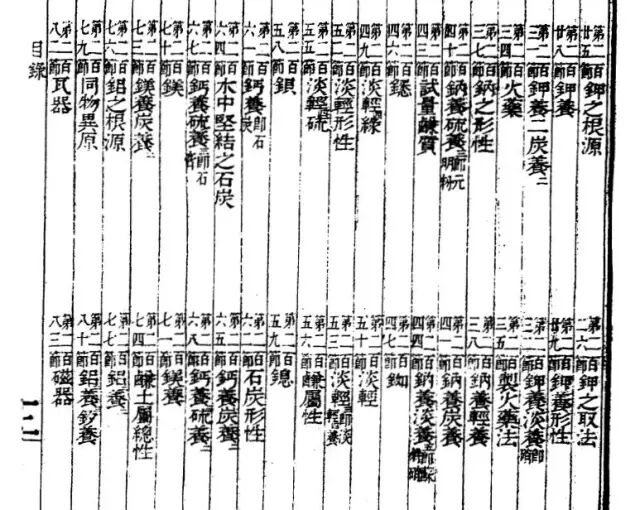 第二百廿五節鉀之根源 第二百二六節鉀之取法
第二百廿八節鉀養 第二百廿九節鉀養形性
第二百三一節鉀養二炭養二 第二百三二節鉀養淡養即硝
第二百三四節火藥 第二百三五節製火藥法
第二百三七節鈉之形性 第二百三八節鈉養輕養
第二百四十節鈉養硫養三即元明粉 第二百四一節鈉養炭養
第二百四三節試量鹻質 第二百四四節鈉養淡養
第二百四六節 第二百四七節
第二百四九節淡輕綠 第二百五十節淡輕
第二百五二節淡輕形性 第二百五三節淡輕即淡輕養
第二百五五節淡輕硫 第二百五六節鹻屬性
第二百五八節鋇 第二百五九節鎴
第二百六一節鈣養即石灰 第二百六二節石炭形性
第二百六四節水中堅結之石炭 第二百六五節鈣養炭養二
第二百六七節鈣養硫養三即石膏 第二百六八節鈣養硫養二
第二百七十節鎂 第二百七一節鎂養
第二百七三節鎂養炭養二 第二百七四節鹻土屬總性
第二百七六節鋁之根源 第二百七七節鋁養
第二百七九節同物異原 第二百八十節鋁養矽養
第二百八二節瓦器 第二百八三節磁器
目錄